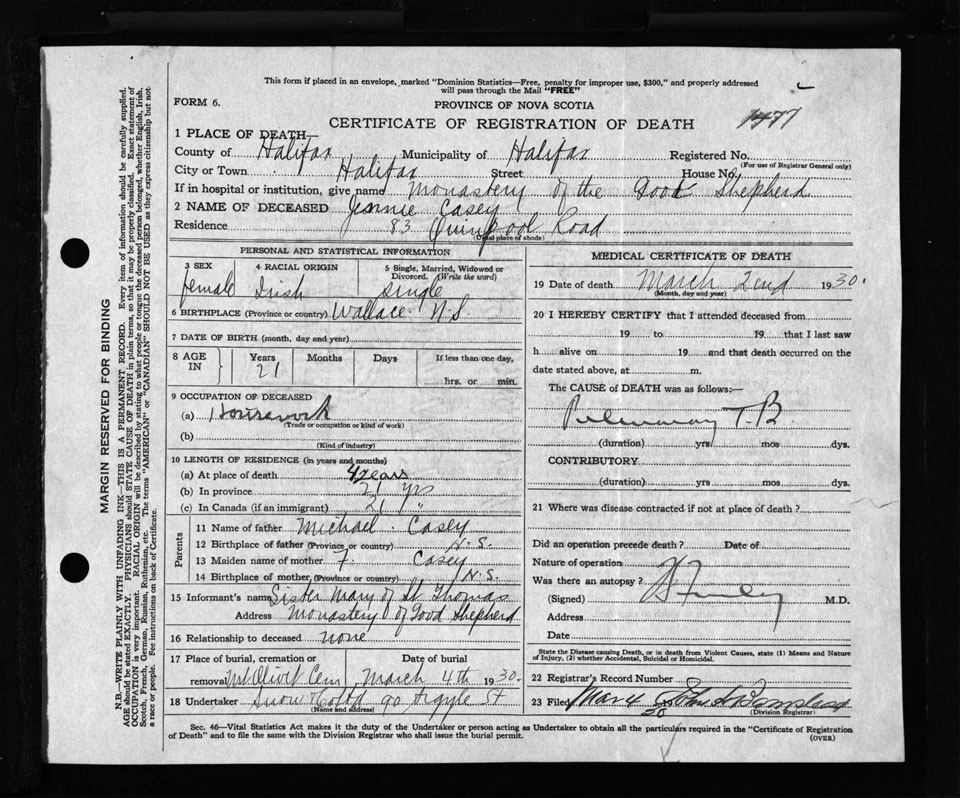 This form if placed in an envelope, marked "Dominion Statistics—Free, penalty for improper use, $300," and properly addressed
will pass through the Mail "FREE"
FORM 6.
PROVINCE OF NOVA SCOTIA
CERTIFICATE OF REGISTRATION OF DEATH
1477
1 PLACE OF DEATH—
County of Halifax Municipality of Halifax Registered No.
(For use of Registrar General only)
City or Town Halifax Street House No.
If in hospital or institution, give name Monastery of the Good Shepherd
2 NAME OF DECEASED Jennie Casey
Residence 83 Quinpool Road
(Usual place of abode)
PERSONAL AND STATISTICAL INFORMATION
3 SEX 4 RACIAL ORIGIN 5 Single, Married, Widowed or Divorced. (Write the word)
female Irish single
6 BIRTHPLACE (Province or country) Wallace N.S
7 DATE OF BIRTH (month, day and year)
8 AGE IN Years Months Days If less than one day,
21 hrs. or min.
9 OCCUPATION OF DECEASED
(a) Housework
(Trade or occupation or kind of work)
(b)
(Kind of industry)
10 LENGTH OF RESIDENCE (in years and months)
(a) At place of death 4 years
(b) In province 21 yrs
(c) In Canada (if an immigrant) 21 "
Parents
11 Name of father Michael Casey
12 Birthplace of father (Province or country) N.S.
13 Maiden name of mother F. Casey
14 Birthplace of mother (Province or country) N.S.
15 Informant's name Sister Mary of St Thomas
Address Monastery of Good Shepherd
16 Relationship to deceased none
17 Place of burial, cremation or Date of burial
removal Mt Olivet Cem March 4th 1930.
18 Undertaker Snow & Co Ltd 90 Argyle St
(Name and address)
MEDICAL CERTIFICATE OF DEATH
19 Date of death March 2nd 1930.
(Month, day and year)
20 I HEREBY CERTIFY that I attended deceased from
19 to 19 that I last saw
h alive on 19 and that death occurred on the
date stated above, at m.
The CAUSE of DEATH was as follows:—
Pulmonary T.B.
(duration) yrs mos dys.
CONTRIBUTORY
(duration) yrs. mos. dys.
21 Where was disease contracted if not at place of death?
Did an operation precede death? Date of
Nature of operation
Was there an autopsy?
(Signed) M.D.
Address
Date
State the Disease causing Death, or in death from Violent Causes, state (1) Means and Nature
of Injury, (2) whether Accidental, Suicidal or Homicidal.
22 Registrar's Record Number
23 Filed Mar 4 19 30 John A
(Division Registrar)
Sec. 46—Vital Statistics Act makes it the duty of the Undertaker or person acting as Undertaker to obtain all the particulars required in the "Certificate of Registration
of Death" and to file the same with the Division Registrar who shall issue the burial permit.
(OVER)
MARGIN RESERVED FOR BINDING
N.B.—WRITE PLAINLY WITH UNFADING INK—THIS IS A PERMANENT RECORD. Every item of information should be carefully supplied.
AGE should be stated EXACTLY. PHYSICIANS should STATE CAUSE OF DEATH in plain terms, so that it may be properly classified. Exact statement of
OCCUPATION is very important. RACIAL ORIGIN will be described by stating to what people or tongue the deceased person belonged, whether English, Irish,
Scotch, French, German, Russian, Ruthenian, etc. The terms "AMERICAN" or "CANADIAN" SHOULD NOT BE USED as they express citizenship but not
a race or people. See instructions on back of Certificate.